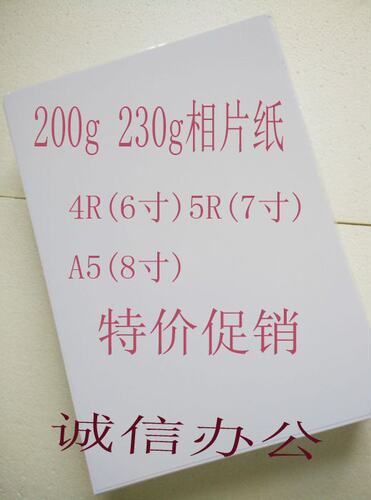 200g 230g相片纸
4R(6寸)5R(7寸)
A5(8寸)
特价促销
诚信办公